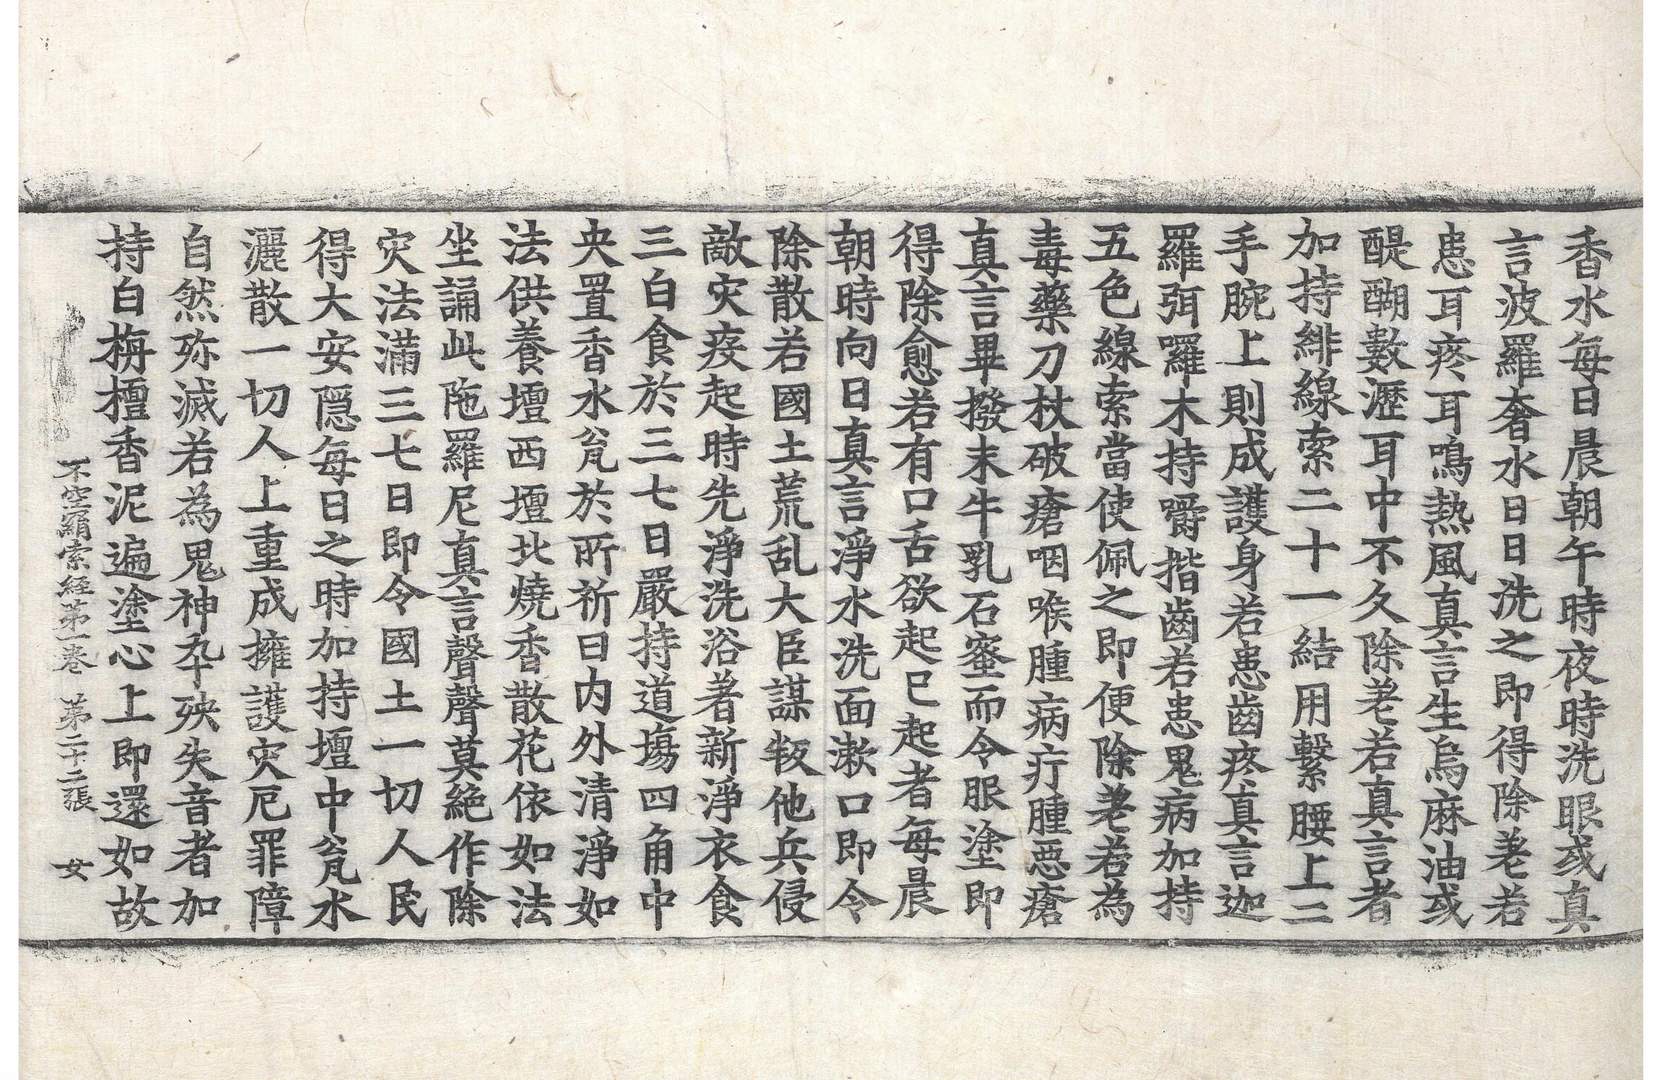 香水每日晨朝午時夜時洗眼或真
言波羅奢水日日洗之即得除差若
患耳疼耳鳴熱風真言生烏麻油或
醍醐數瀝耳中不久除差若真言者
加持緋線索二十一結用繫腰上二
手腕上則成護身若患齒疼真言迦
羅弭囉木持嚼揩齒若患鬼病加持
五色線索當使佩之即便除差若為
毒藥刀杖破瘡咽喉腫病疔腫惡瘡
真言畢撥末牛乳石蜜而令服塗即
得除愈若有口舌欲起已起者每晨
朝時向日真言淨水洗面漱口即令
除散若國土荒乱大臣謀叛他兵侵
敵灾疫起時先淨洗浴著新淨衣食
三白食於三七日嚴持道場四角中
央置香水瓮於所祈日內外清淨如
法供養壇西壇北燒香散花依如法
坐誦此陁羅尼真言聲聲莫絕作除
灾法滿三七日即令國土一切人民
得大安隱每日之時加持壇中瓮水
灑散一切人上重成擁護灾厄罪障
自然殄滅若為鬼神卒殃失音者加
持白栴檀香泥遍塗心上即還如故
不空羂索經第一卷 第二十二張 女